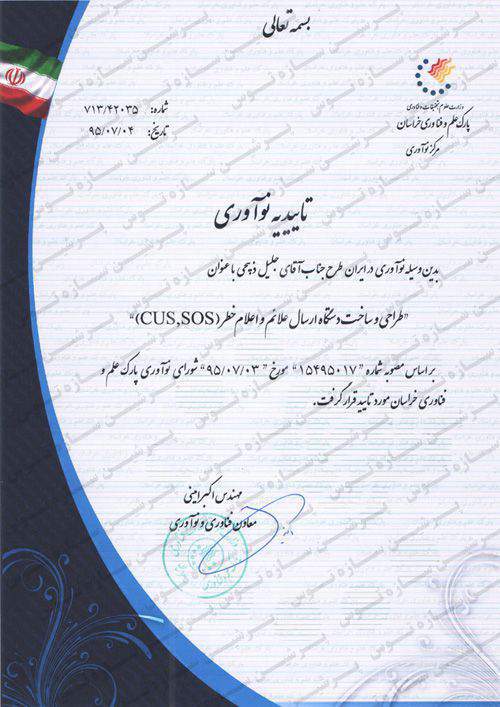 بسمه تعالی
وزارت علوم تحقیقات و فناوری
پارک علم و فناوری خراسان
مرکز نوآوری
شماره: ۷۱۳/۴۲۰۳۵
تاریخ: ۹۵/۰۷/۰۴
تاییدیه نوآوری
بدین وسیله نوآوری در ایران طرح جناب آقای جلیل ذبیحی با عنوان
"طراحی و ساخت دستگاه ارسال علائم و اعلام خطر (CUS,SOS)"
بر اساس مصوبه شماره "۱۵۴۹۵۰۱۷" مورخ "۹۵/۰۷/۰۳" شورای نوآوری پارک علم و
فناوری خراسان مورد تایید قرار گرفت.
مهندس اکبر امینی
معاون فناوری و نوآوری
پرشین سازه توس